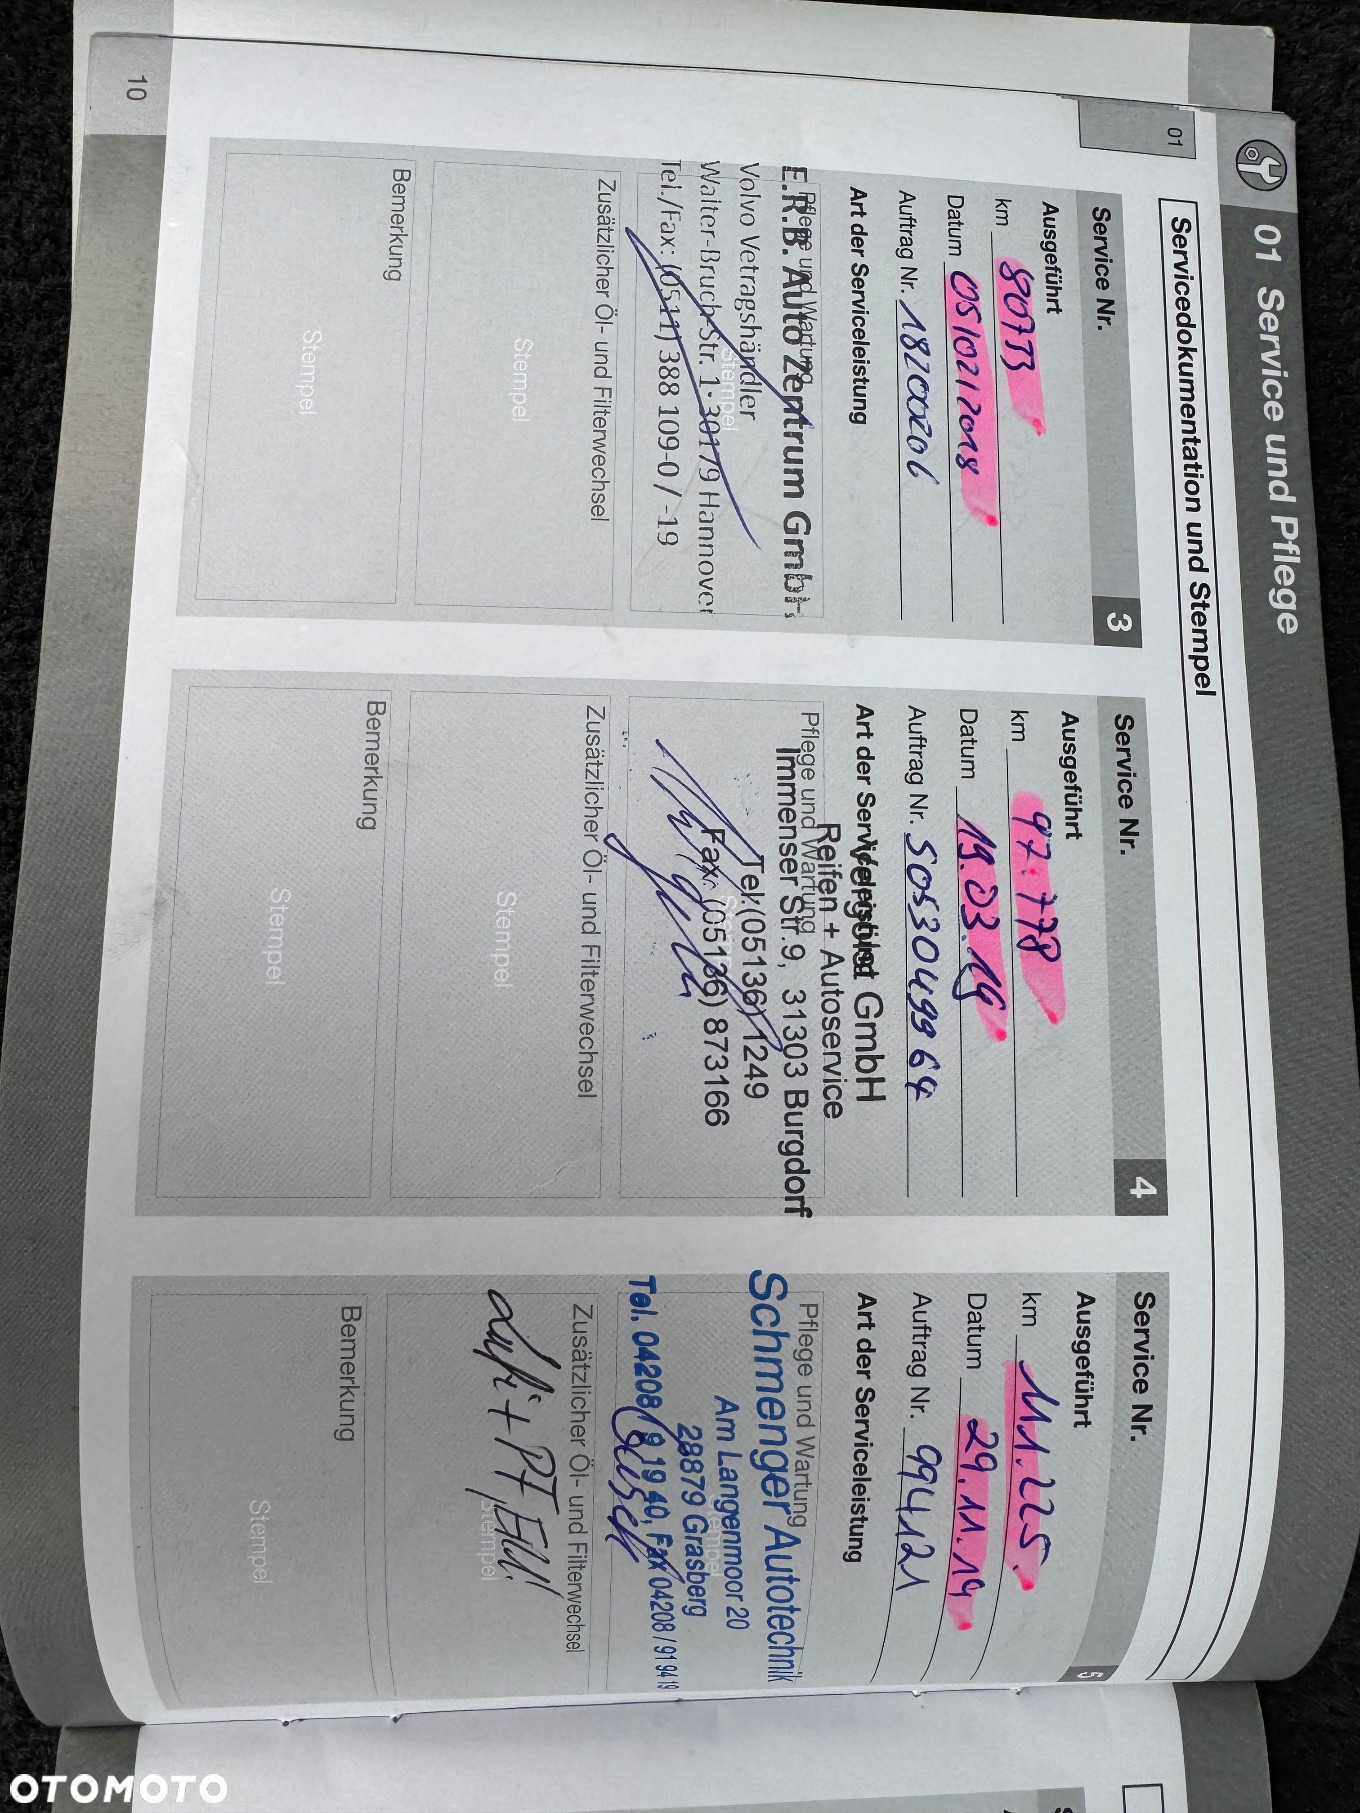 01 Service und Pflege
01
Servicedokumentation und Stempel
Service Nr. 3
Ausgeführt
km 80773
Datum 05/02/2018
Auftrag Nr. 18200206
Art der Serviceleistung
Pflege und Wartung
E.R.B. Auto Zentrum GmbH
Volvo Vetragshändler
Stempel
Walter-Bruch-Str. 1 · 30179 Hannover
Tel./Fax: (0511) 388 109-0 / -19
Zusätzlicher Öl- und Filterwechsel
Stempel
Bemerkung
Stempel
Service Nr. 4
Ausgeführt
km 97.778
Datum 19.03.19
Auftrag Nr. 5053049964
Art der Serviceleistung
GmbH
Reifen + Autoservice
Pflege und Wartung
Immenser Str.9, 31303 Burgdorf
Tel.(05136) 1249
Stempel
Fax: (05136) 873166
Zusätzlicher Öl- und Filterwechsel
Stempel
Bemerkung
Stempel
Service Nr. 5
Ausgeführt
km 111.225.
Datum 29.11.19
Auftrag Nr. 994121
Art der Serviceleistung
Pflege und Wartung
Schmenger Autotechnik
Am Langenmoor 20
Stempel
28879 Grasberg
Tel. 04208 / 9 19 40, Fax 04208 / 91 94 19
Zusätzlicher Öl- und Filterwechsel
Stempel
Bemerkung
Stempel
10
OTOMOTO